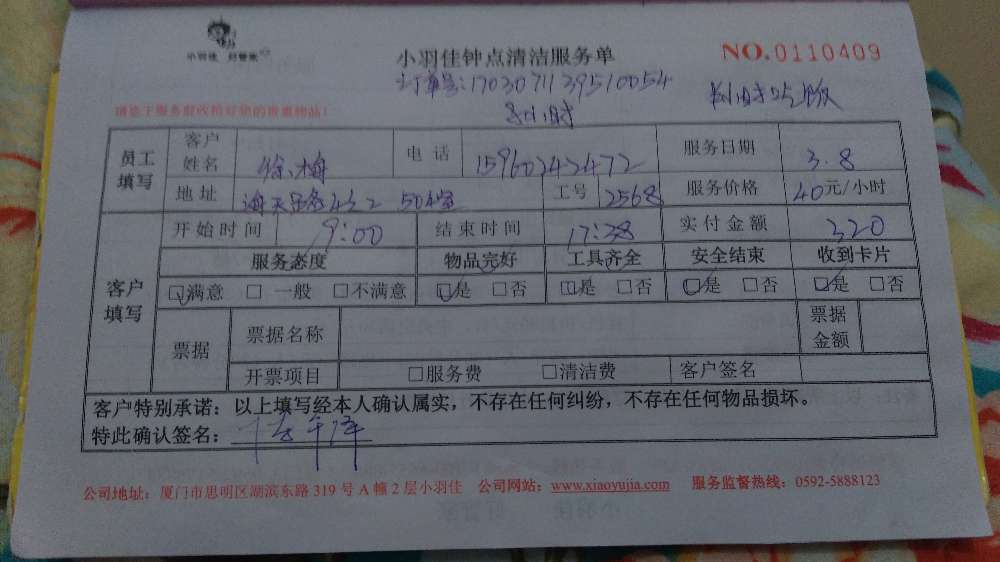 小羽佳 好管家
小羽佳钟点清洁服务单 NO.0110409
订单号:17030711395710054
请您于服务前收拾好您的贵重物品!
员工填写 客户姓名 徐梅 电话 15960242472 服务日期 3.8
地址 504室 工号 2568 服务价格 40元/小时
客户填写 开始时间 9:00 结束时间 17:38 实付金额 320
服务态度 物品完好 工具齐全 安全结束 收到卡片
☑满意 □一般 □不满意 ☑是 □否 ☑是 □否 ☑是 □否 ☑是 □否
票据 票据名称 票据金额
开票项目 □服务费 □清洁费 客户签名
客户特别承诺:以上填写经本人确认属实,不存在任何纠纷,不存在任何物品损坏。
特此确认签名:
公司地址:厦门市思明区湖滨东路 319 号 A 幢 2 层小羽佳 公司网站:www.xiaoyujia.com 服务监督热线:0592-5888123